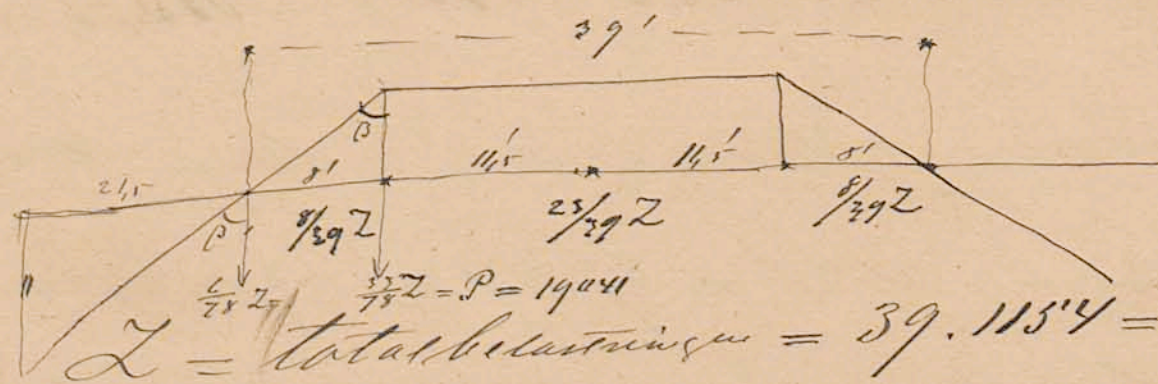 39'
β
21,5 8' 11,5' 11,5' 8'
β 8/39 Z 23/39 Z 8/39 Z
/78 Z = /78 Z = P = 19041
Z = totalbelastningen = 39. 115'4 =